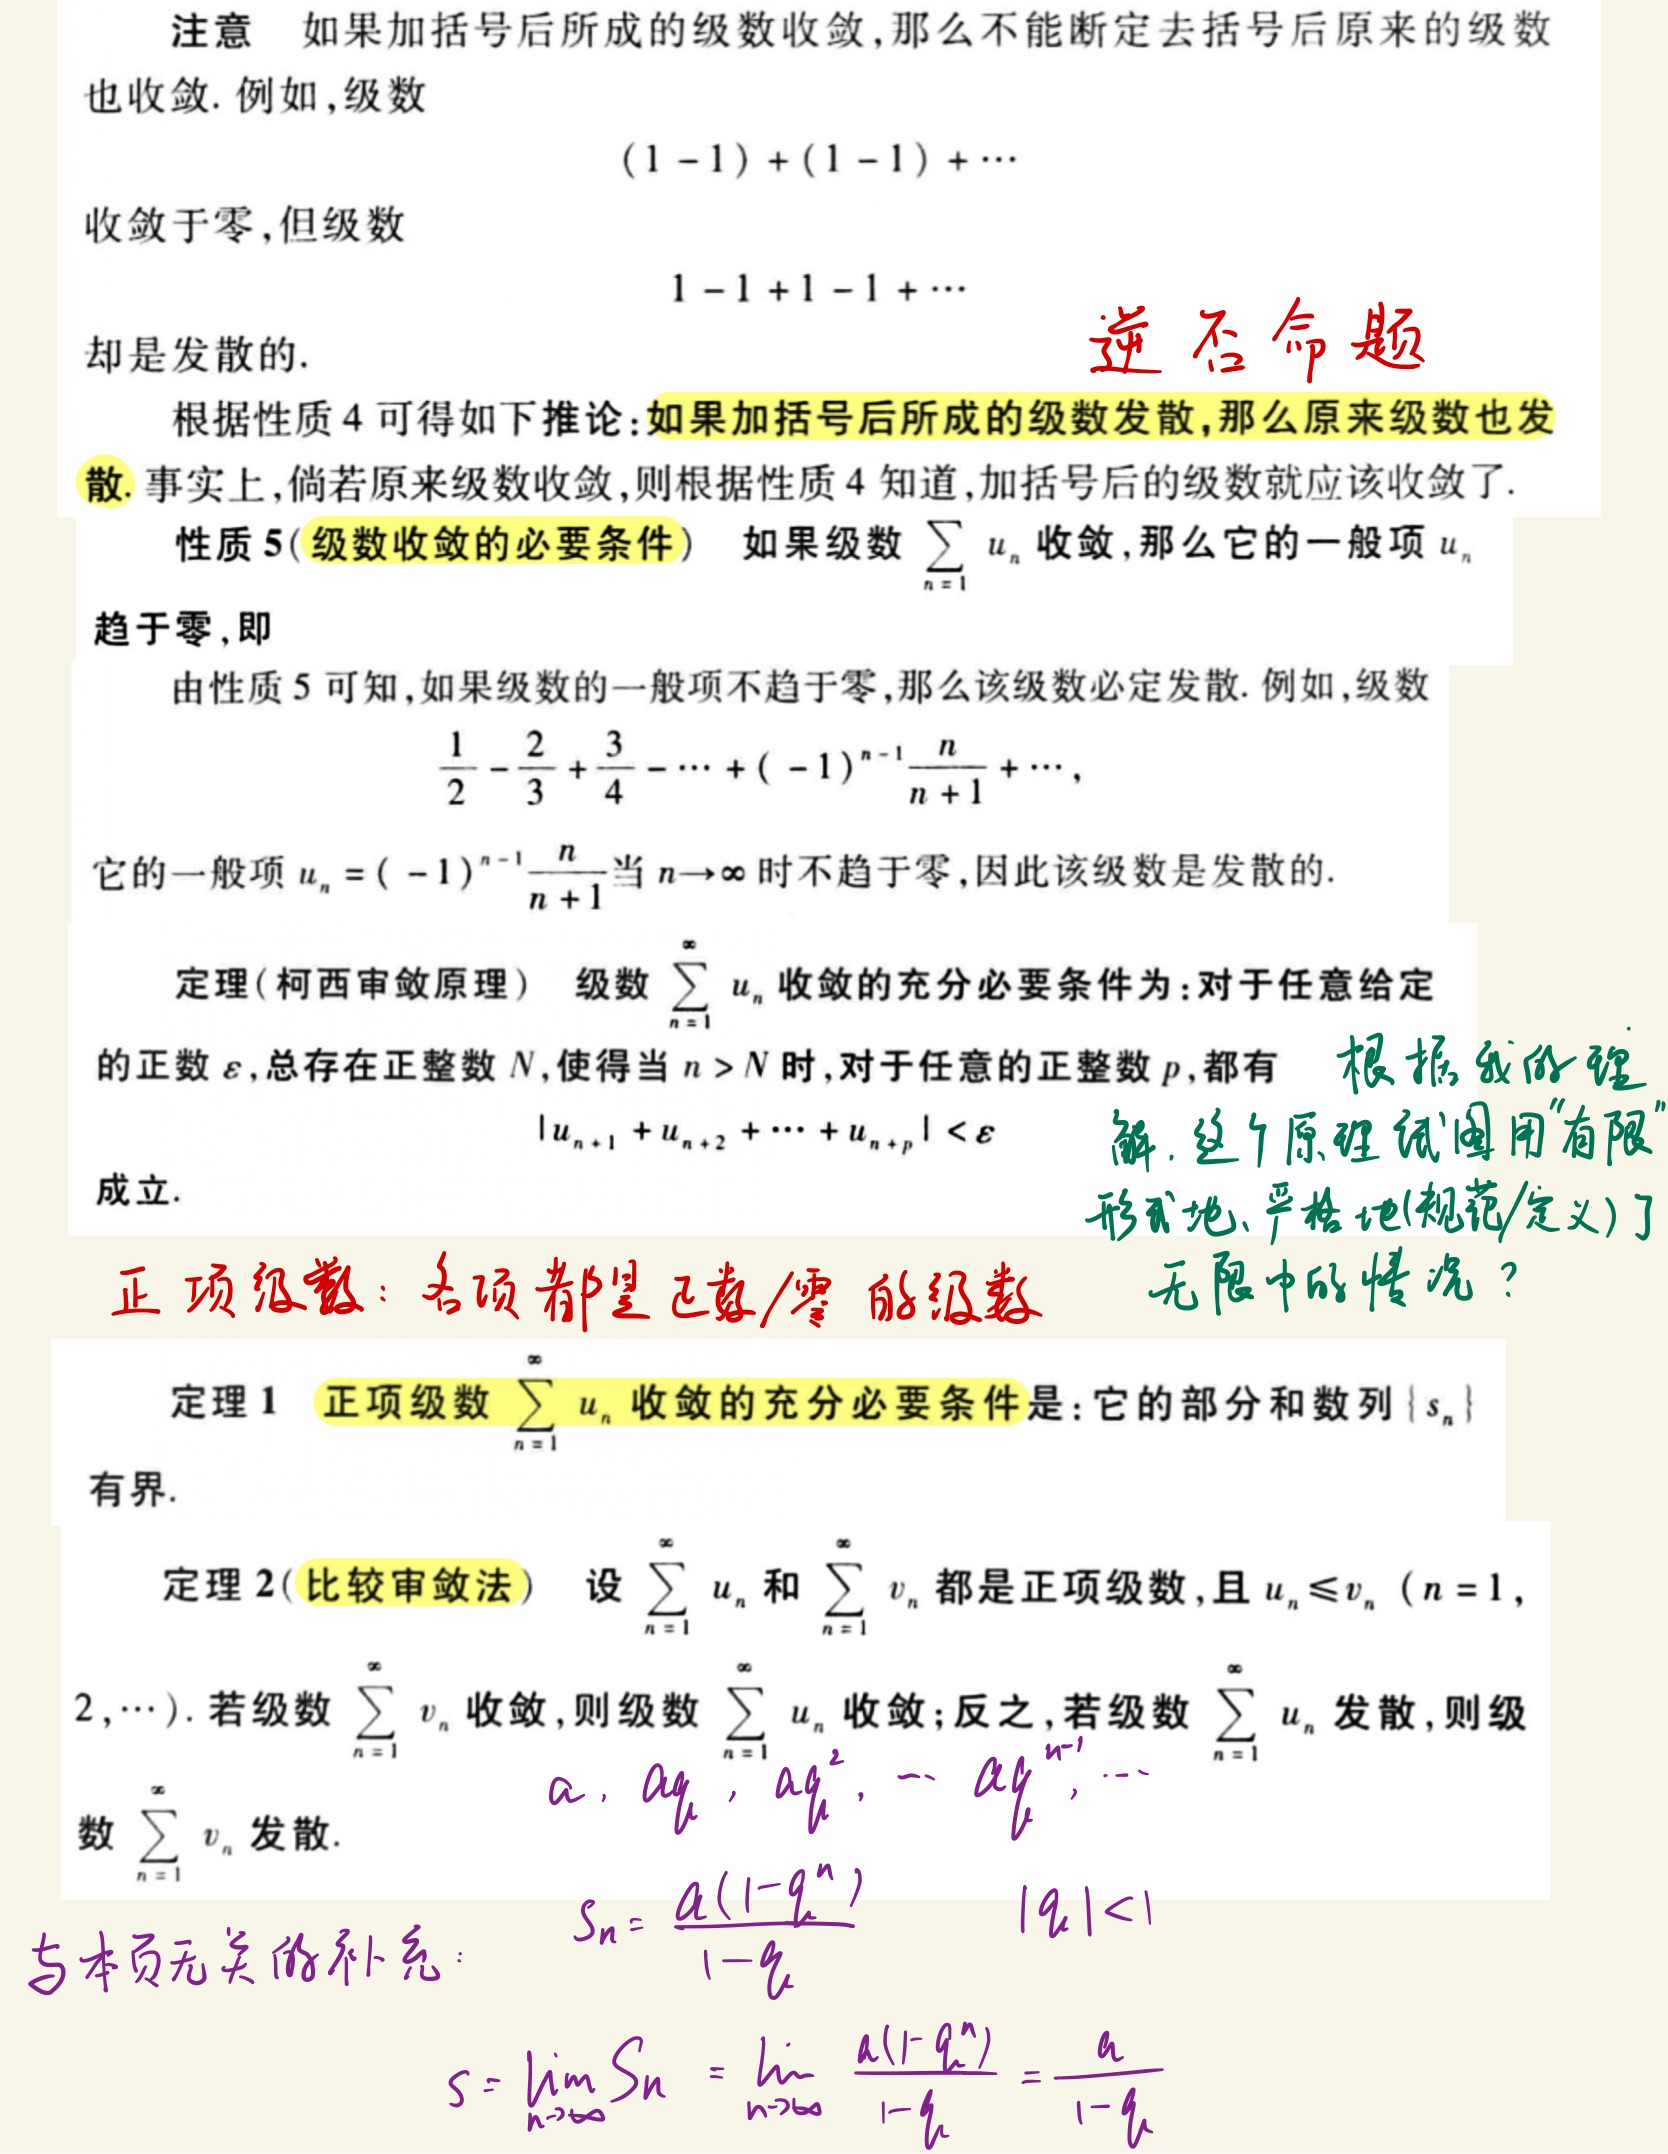 注意 如果加括号后所成的级数收敛,那么不能断定去括号后原来的级数
也收敛. 例如,级数
(1 - 1) + (1 - 1) + ⋯
收敛于零,但级数
1 - 1 + 1 - 1 + ⋯
却是发散的.
逆否命题
根据性质 4 可得如下推论:如果加括号后所成的级数发散,那么原来级数也发
散. 事实上,倘若原来级数收敛,则根据性质 4 知道,加括号后的级数就应该收敛了.
性质 5(级数收敛的必要条件) 如果级数 ∑_{n=1} u_n 收敛,那么它的一般项 u_n
趋于零,即
由性质 5 可知,如果级数的一般项不趋于零,那么该级数必定发散. 例如,级数
1/2 - 2/3 + 3/4 - ⋯ + (-1)^{n-1} n/(n+1) + ⋯,
它的一般项 u_n = (-1)^{n-1} n/(n+1) 当 n→∞ 时不趋于零,因此该级数是发散的.
定理(柯西审敛原理) 级数 ∑_{n=1}^{∞} u_n 收敛的充分必要条件为:对于任意给定
的正数 ε,总存在正整数 N,使得当 n > N 时,对于任意的正整数 p,都有
|u_{n+1} + u_{n+2} + ⋯ + u_{n+p}| < ε
成立.
根据我的理
解,这个原理试图用“有限”
形式地、严格地(规范/定义)了
无限中的情况?
正项级数: 各项都是正数/零的级数
定理 1 正项级数 ∑_{n=1}^{∞} u_n 收敛的充分必要条件是:它的部分和数列{s_n}
有界.
定理 2(比较审敛法) 设 ∑_{n=1}^{∞} u_n 和 ∑_{n=1}^{∞} v_n 都是正项级数,且 u_n ≤ v_n (n = 1,
2,⋯). 若级数 ∑_{n=1}^{∞} v_n 收敛,则级数 ∑_{n=1}^{∞} u_n 收敛;反之,若级数 ∑_{n=1}^{∞} u_n 发散,则级
数 ∑_{n=1}^{∞} v_n 发散.
a, aq, aq^2, ⋯ aq^{n-1}, ⋯
与本页无关的补充:
S_n = a(1-q^n)/(1-q) |q|<1
S = lim_{n→∞} S_n = lim_{n→∞} a(1-q^n)/(1-q) = a/(1-q)